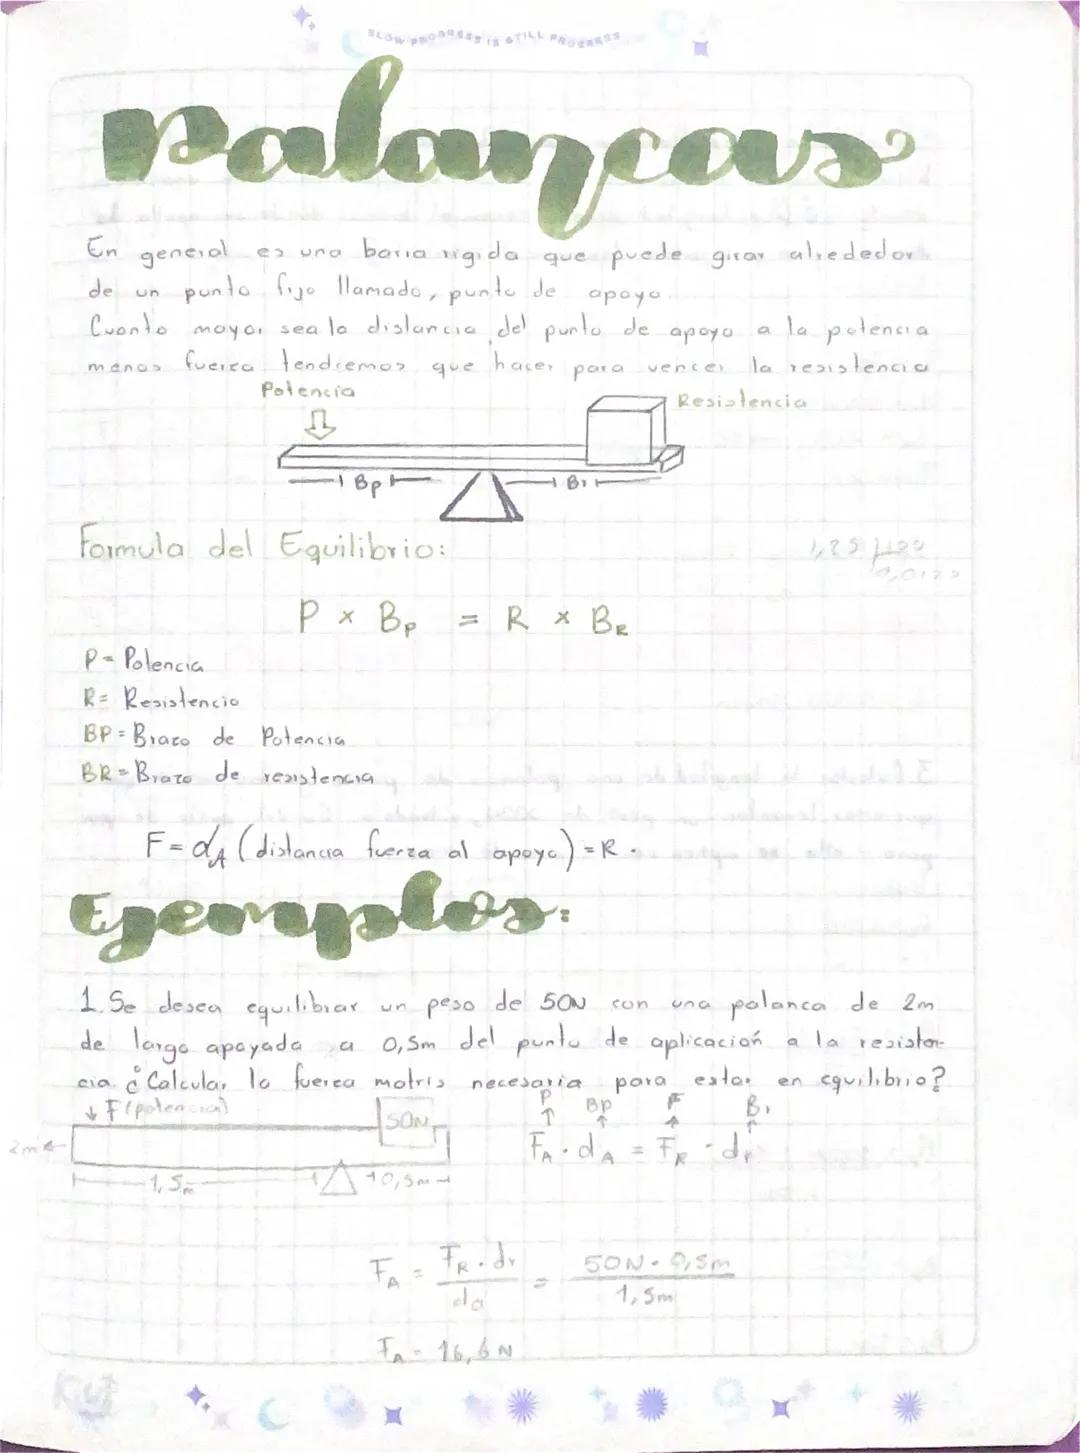 SLOW PROGRESS IS STILL PROGRESS
Palancas
En general es una barra rigida que puede girar alrededor
de un punto fijo llamado, punto de apoyo.
Cuanto mayor sea la distancia del punto de apoyo a la potencia
menos fuerza tendremos que hacer para vencer la resistencia
Potencia
Resistencia
Bp
Br
Formula del Equilibrio:
P × Bp = R × BR
P = Potencia
R = Resistencia
BP = Brazo de Potencia
BR = Brazo de resistencia
F = dA (distancia fuerza al apoyo) = R .
Ejemplos:
1. Se desea equilibrar un peso de 50N con una palanca de 2m
de largo apoyada a 0,5m del punto de aplicación a la resisten-
cia. ¿Calcular la fuerza matris necesaria para estar en equilibrio?
↓ F(potencia)
50N
P Bp F Br
↑ ↑ ↑ ↑
2m
FA · dA = FR · dr
1,5m
0,5m
FA = FR · dr / da = 50N · 0,5m / 1,5m
FA = 16,6 N